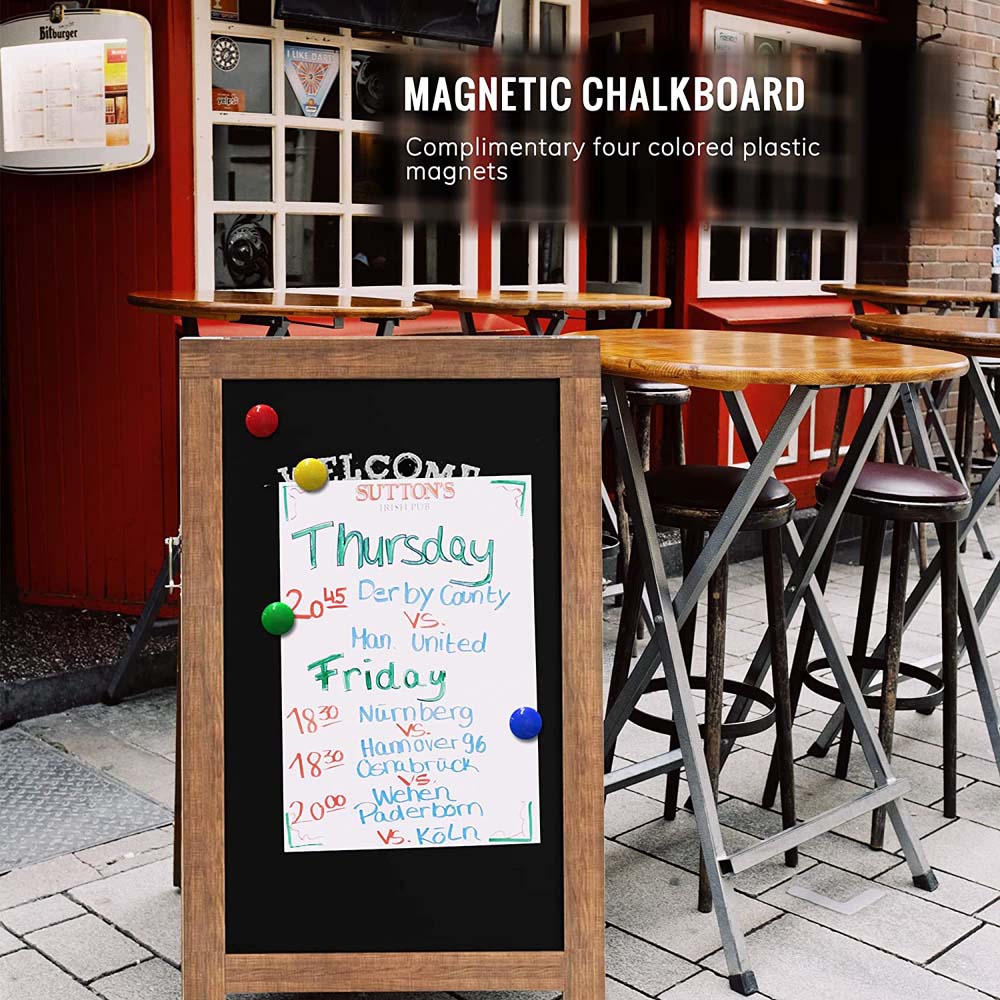 Bitburger
I LIKE DARTS
yelp
MAGNETIC CHALKBOARD
Complimentary four colored plastic
magnets
WELCOME
SUTTON'S
IRISH PUB
Thursday
20 45 Derby County
VS.
Man. United
Friday
18 30 Nürnberg
VS.
Hannover 96
18 30 Osnabrück
VS.
Wehen
20 00 Paderborn
VS. Köln